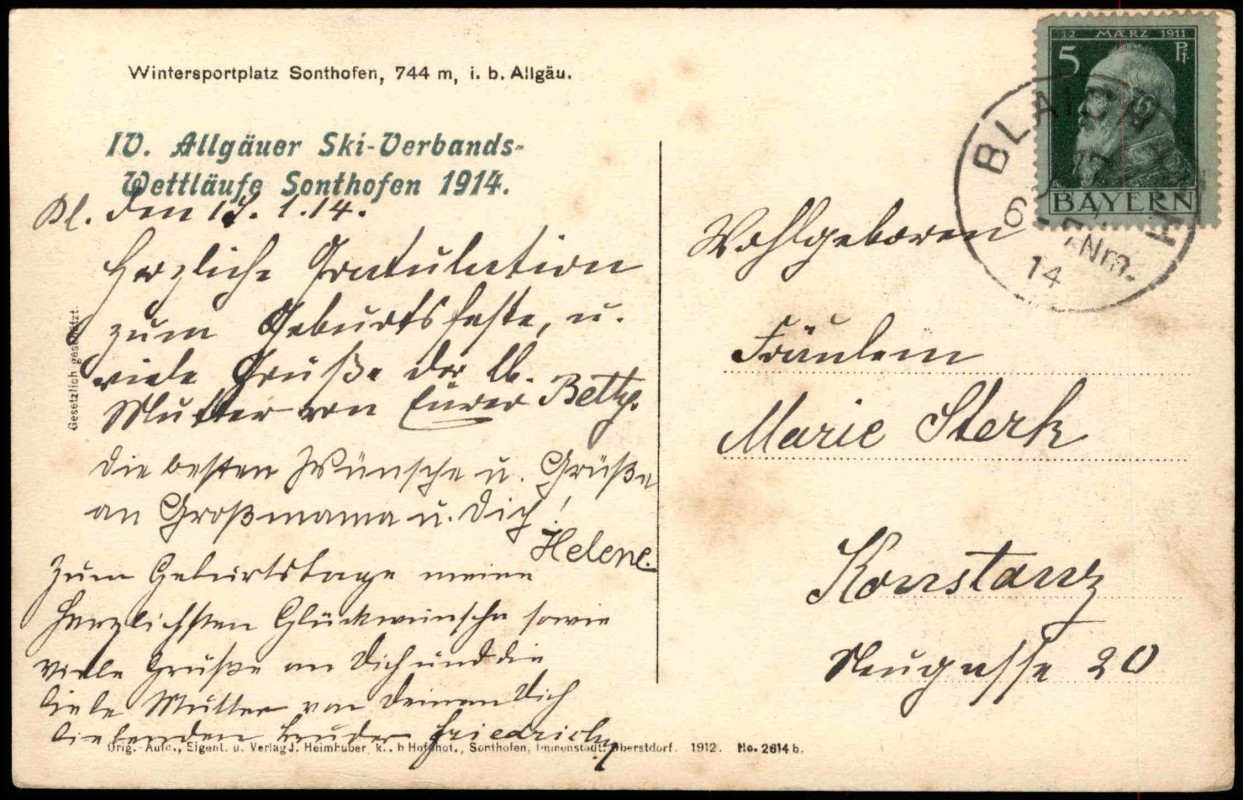 Wintersportplatz Sonthofen, 744 m, i. b. Allgäu.
IV. Allgäuer Ski-Verbands-
Wettläufe Sonthofen 1914.
Bl. den 17. 1. 14.
Herzliche Gratulation
zum Geburtsfeste, u.
viele Grüße der lb.
Mutter von Eurer Betty.
Die besten Wünsche u. Grüße
an Großmama u. Dich!
Helene.
Zum Geburtstage meine
herzlichsten Glückwünsche sowie
viele Grüße an Dich und die
liebe Mutter von Deinem Dich
liebenden Bruder Friedrich
Gesetzlich geschützt.
Orig.-Aufn., Eigent. u. Verlag J. Heimhuber, k. b Hofphot., Sonthofen, Immenstadt, Oberstdorf. 1912. No. 2614 b.
12 MÄRZ 1911
5 Pf.
BAYERN
BLAICHACH
6-7 Nm.
14
Wohlgeboren
Fräulein
Marie Sterk
Konstanz
Neugasse 20